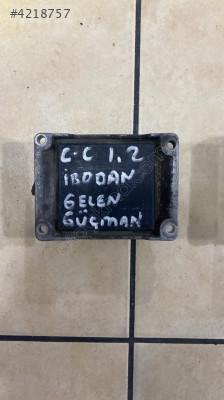 #4218757
C-C 1.2
İBODAN
GELEN
GÜÇMAN